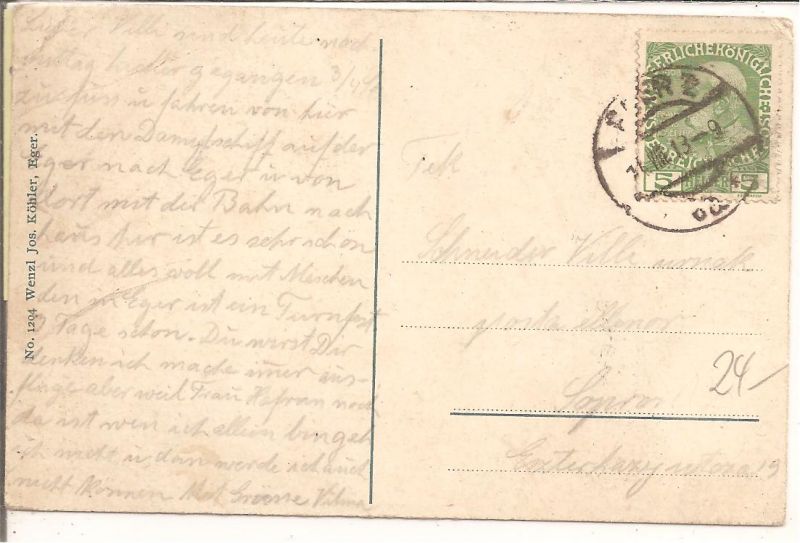 Lieber Villi sind heute nach
mittag hieher gegangen 3/4 St
zu fuss u fahren von hier
mit den Dampfschiff auf der
Eger nach Eger u von
dort mit der Bahn nach
haus hir ist es sehr schön
und alles voll mit Meschen
den in Eger ist ein Turnfest
Tage schon. Du wirst Dir
denken ich mache imer aus-
flüge aber weil Frau noch
da ist wen ich allein bin geh
ich nicht u. dan werde ich auch
nicht können Mit Grüsse Vilma
No. 1204 Wenzl Jos. Köhler, Eger.
KAISERLICHE KÖNIGLICHE ÖSTERREICHISCHE
5 5
EGER 2
11.VIII.13-9
Tek
Schneider Villi urnak
posta
Sopron
Eszterhazy utcza 19
24-